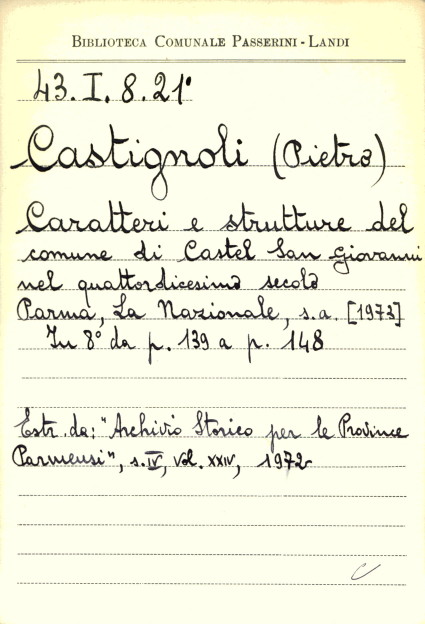 BIBLIOTECA COMUNALE PASSERINI - LANDI
43.I.8.21°
Castignoli (Pietro)
Caratteri e strutture del
comune di Castel San Giovanni
nel quattordicesimo secolo
Parma, La Nazionale, s.a. [1973]
In 8° da p. 139 a p. 148
Estr. da: "Archivio Storico per le Province
Parmensi", s.IV, vol. XXIV, 1972